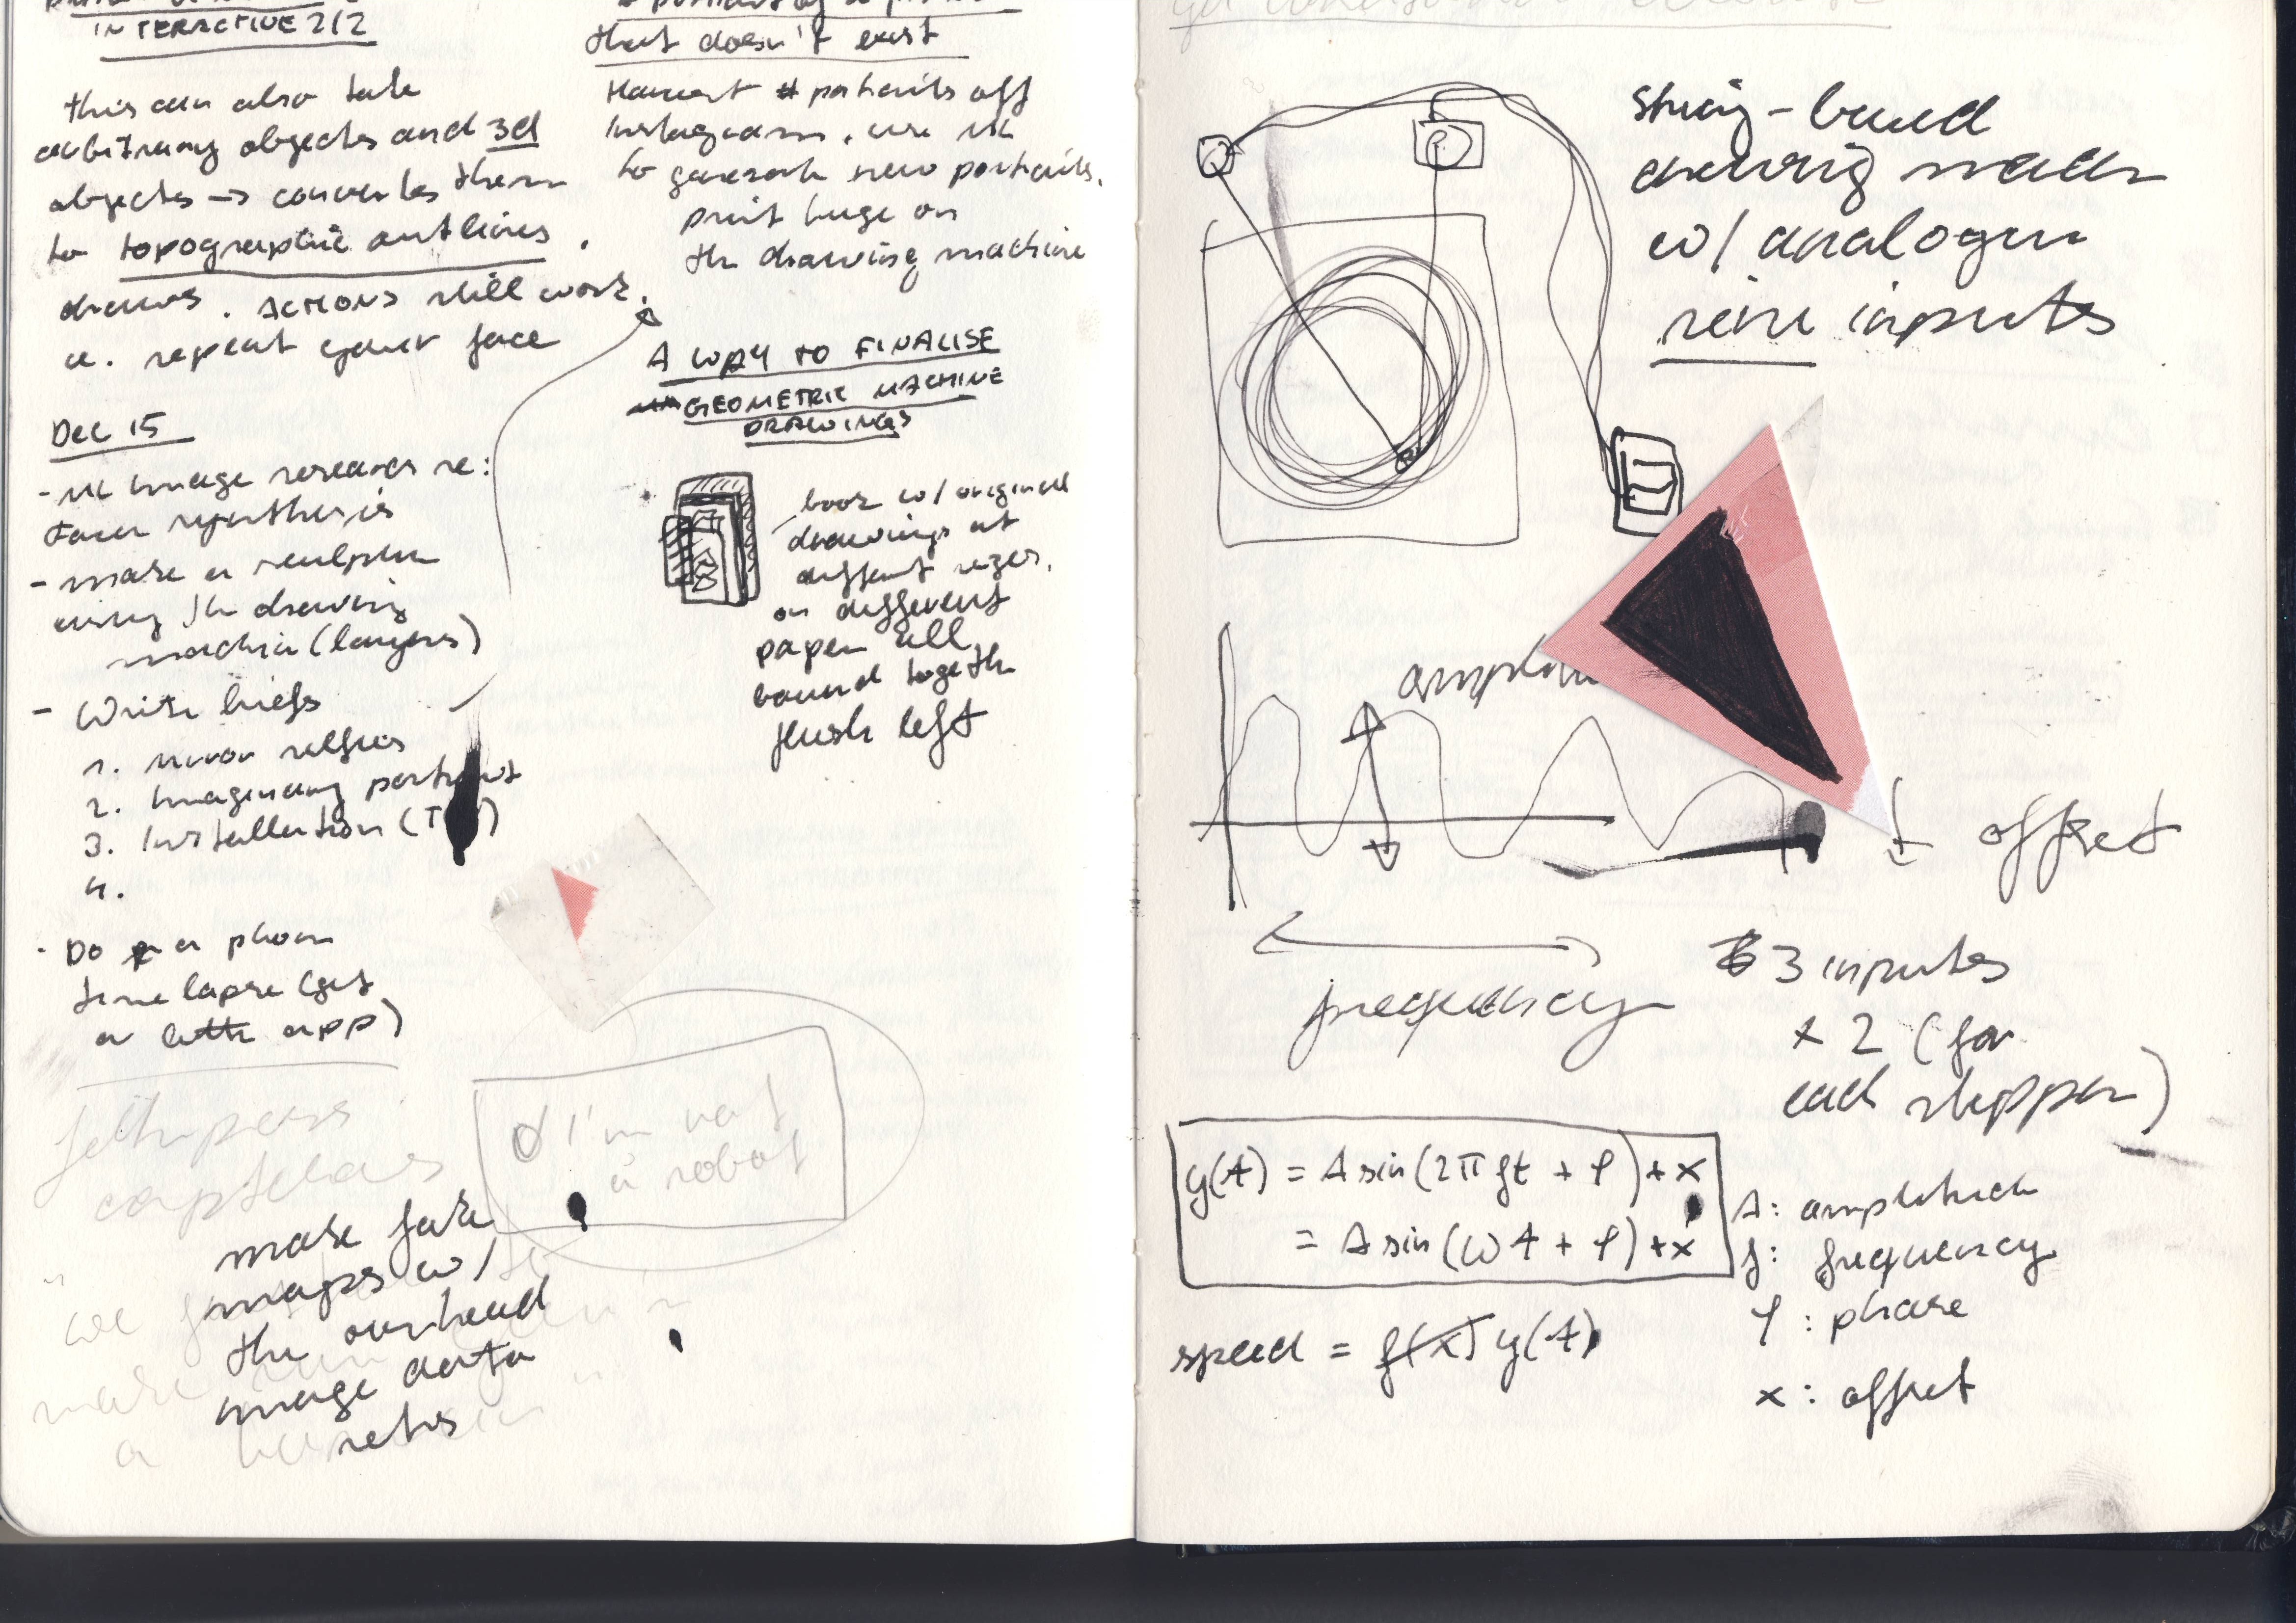 INTERACTIVE 2/2
this can also take
arbitrary objects and 3d
objects → converts them
to topographic outlines.
draws. ACTIONS still work.
ie. repeat your face
Dec 15
- ML image research re:
faces
- make a sculpture
using the drawing
machine (layers)
- Write briefs
1. mirror selfies
2. Imaginary portraits
3. Installation (T
4.
- Do a phone
time lapse (get
a app)
I'm not
a robot
make fake
maps w/
the overhead
image data
sets
that doesn't exist
Harvest # portraits off
Instagram. use ML
to generate new portraits.
print huge on
the drawing machine
A WAY TO FINALISE
GEOMETRIC MACHINE
DRAWINGS
book w/ original
drawings at
different sizes.
on different
paper all
bound together
flush left
string-based
drawing machine
w/ analogue
sine inputs
offset
frequency
3 inputs
x 2 (for
each stepper)
y(t) = A sin(2πft + φ) + x
= A sin(ωt + φ) + x
A: amplitude
f: frequency
φ: phase
x: offset
speed = f(x) y(t)